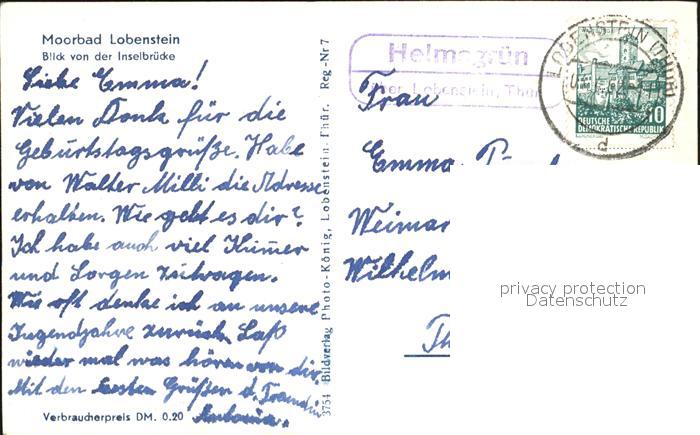 Moorbad Lobenstein
Blick von der Inselbrücke
Liebe Emma!
Vielen Dank für die
Geburtstagsgrüße. Habe
von Walter Milli die Adresse
erhalten. Wie geht es dir?
Ich habe auch viel Kummer
und Sorgen zu tragen.
Wie oft denke ich an unsere
Jugendjahre zurück. Laß
wieder mal was hören von dir.
Mit den besten Grüßen d. Freundin
Antonia.
Verbraucherpreis DM. 0.20
3754 Bildverlag Photo-König, Lobenstein. Thür. Reg-Nr 7
Helmsgrün
über Lobenstein, Thür
LOBENSTEIN (THÜR)
d
10
DEUTSCHE
DEMOKRATISCHE REPUBLIK
Frau
Emma
Weimar
Wilhelm
Th
privacy protection
Datenschutz